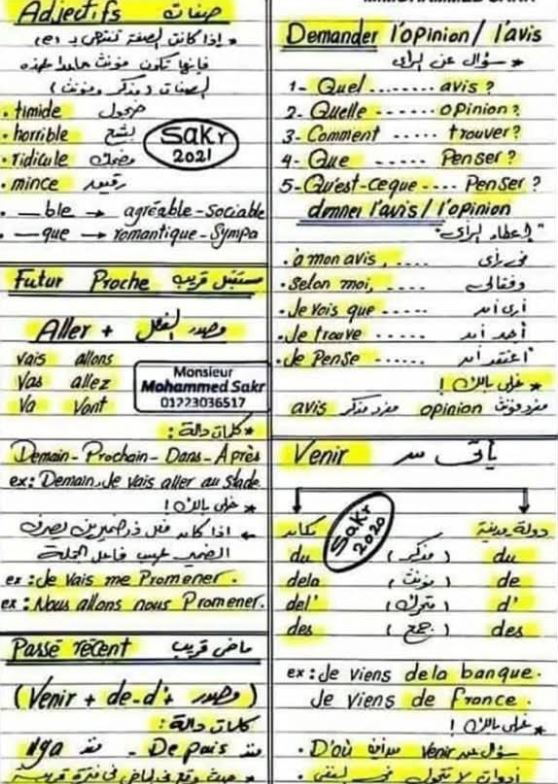 Adjectifs صفات
* إذا كانت الصفة تنتهي بـ (e)
فإنها تكون مؤنث
الصفات (مذكر ومؤنث)
• timide خجول
• horrible بشع
• ridicule مضحك
• mince رفيع
Sakr
2021
• —ble → agréable-Sociable
• —que → romantique-Sympa
Futur Proche مستقبل قريب
Aller + مصدر الفعل
Vais allons
Vas allez
Va Vont
Monsieur
Mohammed Sakr
01223036517
* كلمات دالة:
Demain-Prochain-Dans-Après
ex: Demain, Je vais aller au stade
* خلى بالك!
← اذا كان فعل ذو ضميرين يصرف
الضمير حسب فاعل الجملة
ex: Je vais me Promener.
ex: Nous allons nous Promener.
Passé récent ماضى قريب
(Venir + de-d'+ مصدر)
كلمات دالة:
Ilya منذ - Depais منذ
Demander l'opinion / l'avis
* سؤال عن الراى
1- Quel ........ avis ?
2- Quelle ...... opinion ?
3- Comment ..... trouver ?
4- Que ...... Penser ?
5- Qu'est-ceque .... Penser ?
donner l'avis / l'opinion
"إعطاء الراى"
• à mon avis, .... فى رأى
• selon moi, ..... وفقا لى
• Je vois que ..... أرى أن
• Je trouve ...... أجد أن
• Je Pense ...... أعتقد أن
* خلى بالك!
avis مفرد مذكر opinion مفرد مؤنث
Venir يأتى من
Sakr
2020
مكان دولة مدينة
du (مذكر) du
dela (مؤنث) de
del' (متحرك) d'
des (جمع) des
ex: Je viens dela banque.
Je viens de france.
* خلى بالك!
• D'où سؤال عن venir